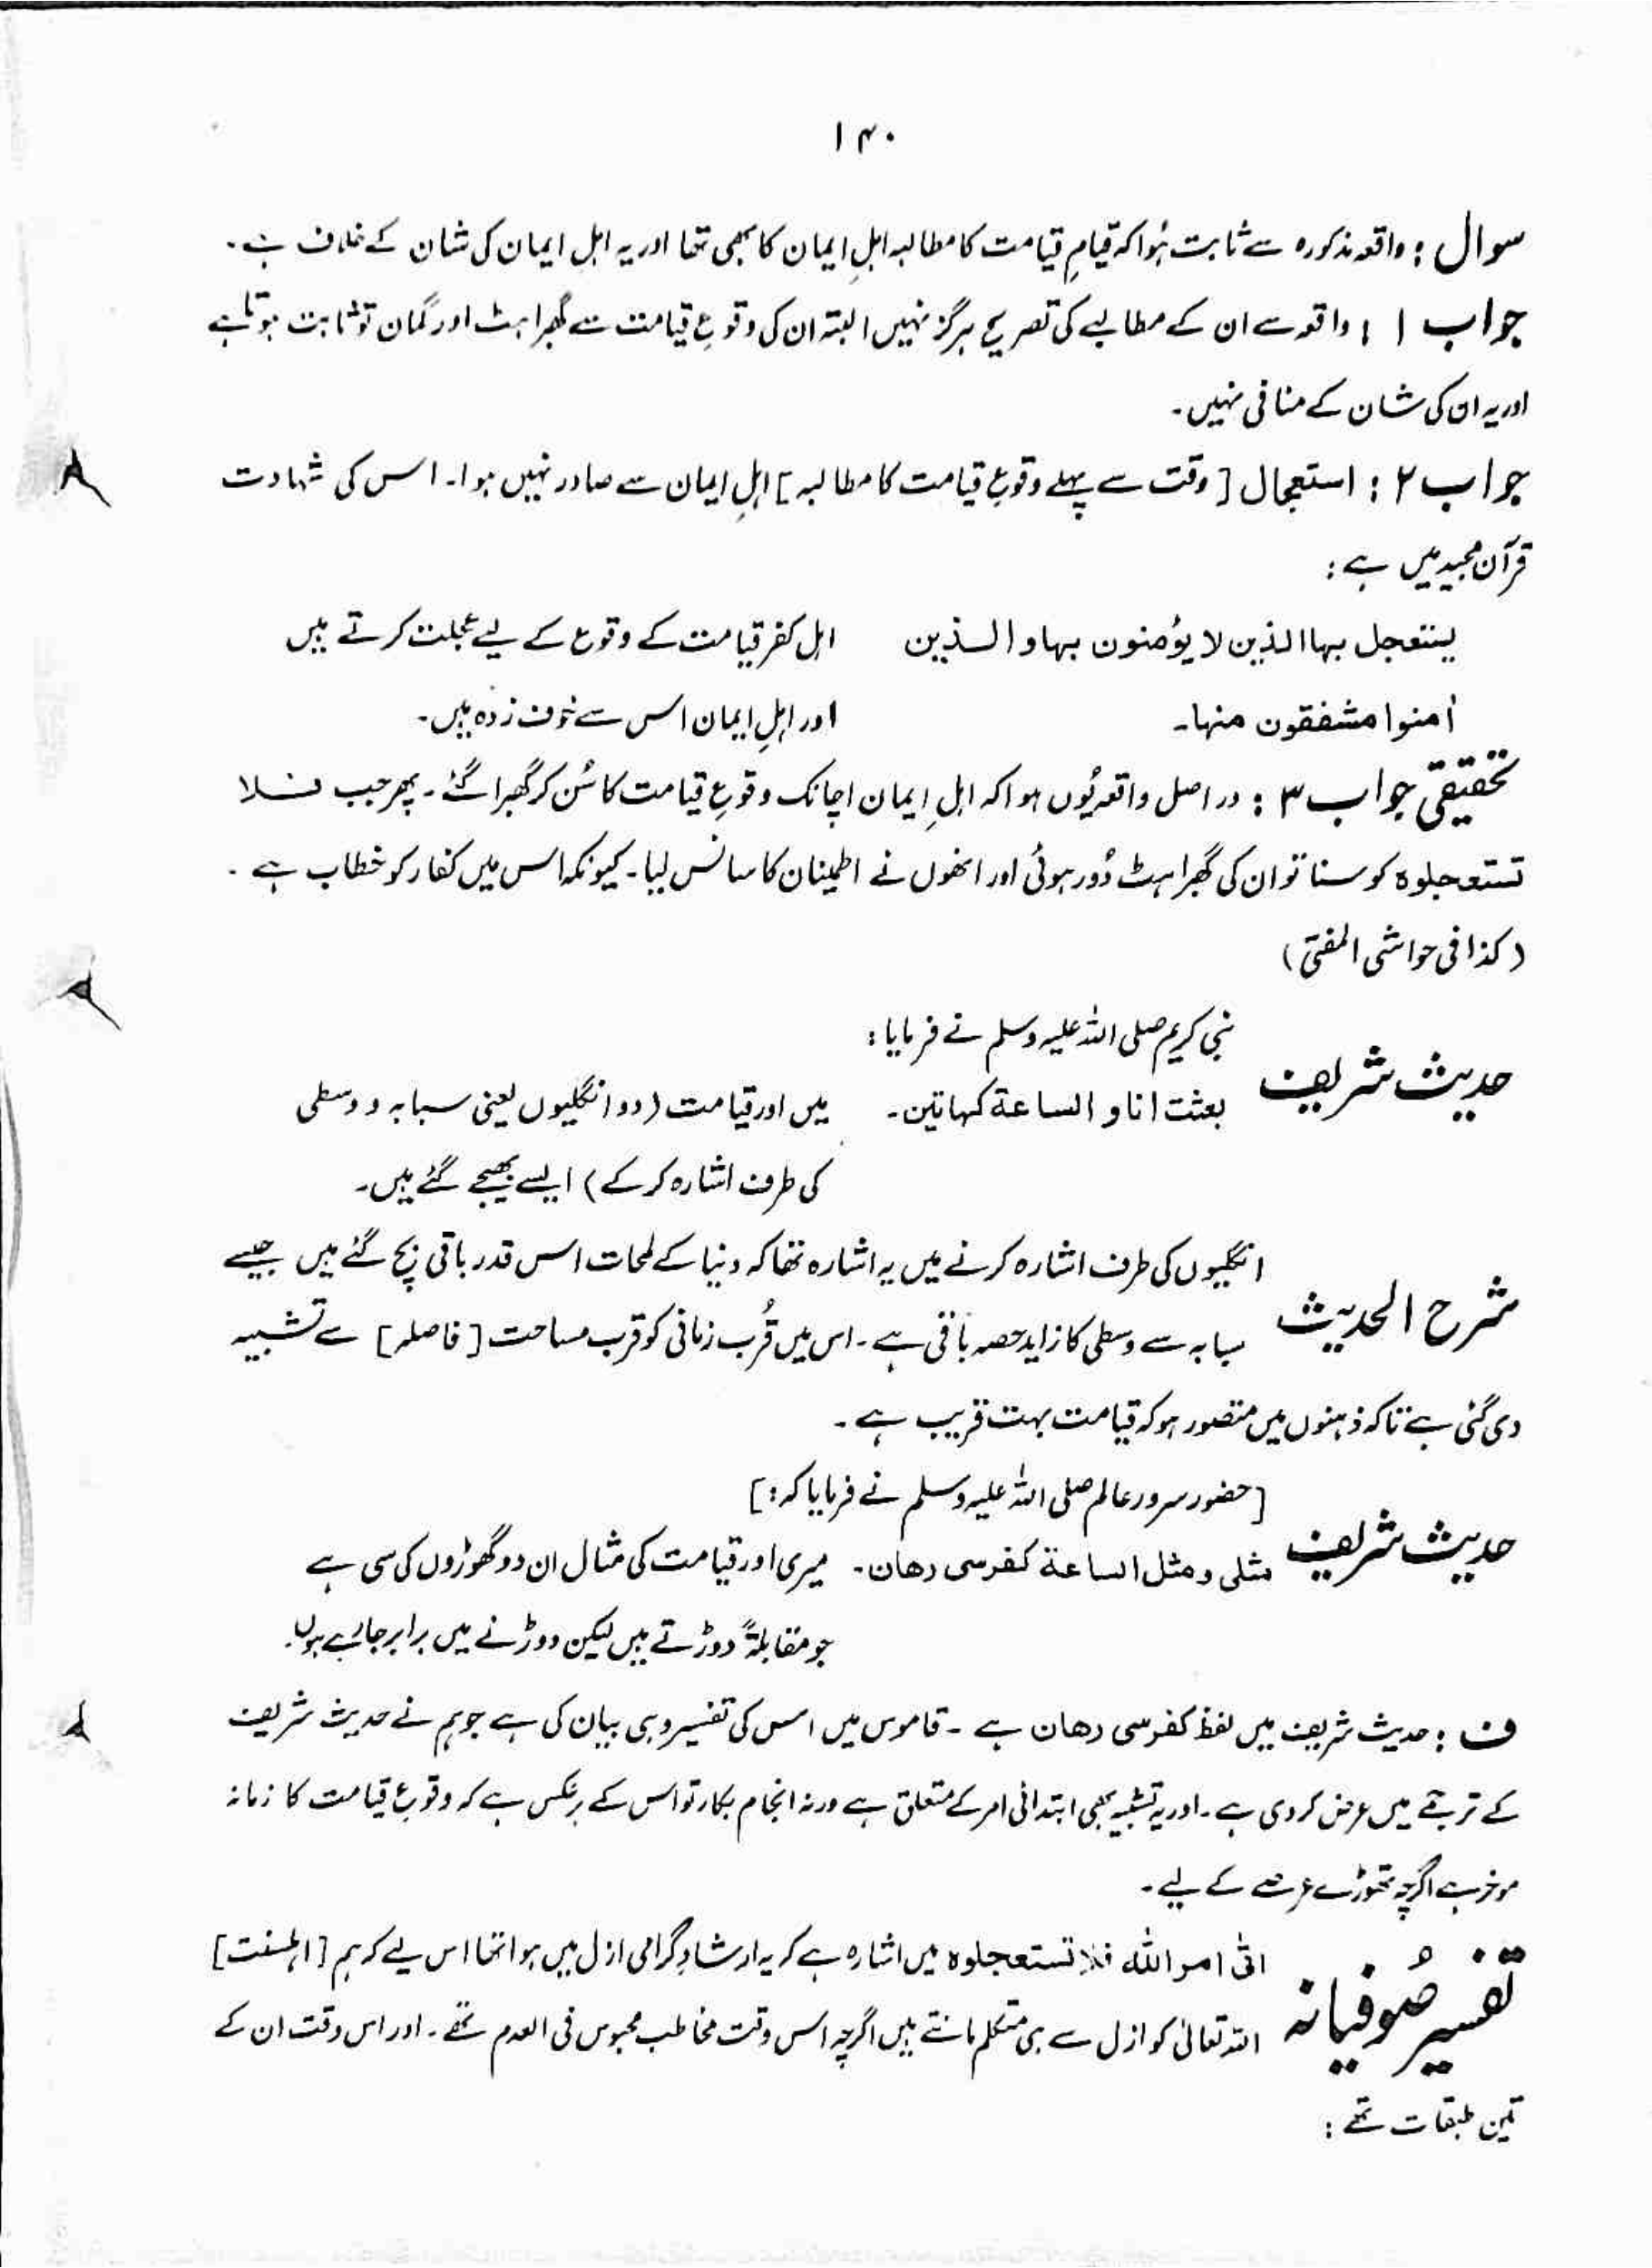 ۱۴۰
سوال : واقعہ مذکورہ سے ثابت ہُوا کہ قیامِ قیامت کا مطالبہ اہلِ ایمان کا بھی تھا اور یہ اہل ایمان کی شان کے خلاف ہے ۔
جواب ۱ : واقعہ سے ان کے مطالبے کی تصریح ہرگز نہیں البتہ ان کی وقوعِ قیامت سے گھبراہٹ اور گمان تو ثابت ہوتا ہے
اور یہ ان کی شان کے منافی نہیں ۔
جواب ۲ : استعجال [ وقت سے پہلے وقوعِ قیامت کا مطالبہ ] اہلِ ایمان سے صادر نہیں ہوا۔ اس کی شہادت
قرآن مجید میں ہے :
یستعجل بہا الذین لا یؤمنون بہا و الذین اہل کفر قیامت کے وقوع کے لیے عجلت کرتے ہیں
اٰمنوا مشفقون منہا۔ اور اہلِ ایمان اس سے خوف زدہ ہیں۔
تحقیقی جواب ۳ : در اصل واقعہ یُوں ہوا کہ اہلِ ایمان اچانک وقوعِ قیامت کا سُن کر گھبرا گئے ۔ پھر جب فلا
تستعجلوہ کو سنا تو ان کی گھبراہٹ دُور ہوئی اور انھوں نے اطمینان کا سانس لیا۔ کیونکہ اس میں کفار کو خطاب ہے ۔
( کذا فی حواشی المفتی )
نبی کریم صلی اللہ علیہ وسلم نے فرمایا :
حدیث شریف بعثت انا و الساعۃ کہاتین۔ میں اور قیامت ( دو انگلیوں یعنی سبابہ و وسطی
کی طرف اشارہ کر کے ) ایسے بھیجے گئے ہیں۔
انگلیوں کی طرف اشارہ کرنے میں یہ اشارہ تھا کہ دنیا کے لمحات اس قدر باقی بچ گئے ہیں جیسے
شرح الحدیث سبابہ سے وسطی کا زاید حصہ باقی ہے۔ اس میں قُرب زمانی کو قرب مساحت [ فاصلہ ] سے تشبیہ
دی گئی ہے تاکہ ذہنوں میں متصور ہو کہ قیامت بہت قریب ہے ۔
[ حضور سرور عالم صلی اللہ علیہ وسلم نے فرمایا کہ : ]
حدیث شریف مثلی و مثل الساعۃ کفرسی رھان۔ میری اور قیامت کی مثال ان دو گھوڑوں کی سی ہے
جو مقابلۃً دوڑتے ہیں لیکن دوڑنے میں برابر جا رہے ہوں۔
ف : حدیث شریف میں لفظ کفرسی رھان ہے ۔ قاموس میں اس کی تفسیر وہی بیان کی ہے جو ہم نے حدیث شریف
کے ترجمے میں عرض کر دی ہے ۔ اور یہ تشبیہ بھی ابتدائی امر کے متعلق ہے ورنہ انجام بکار تو اس کے برعکس ہے کہ وقوعِ قیامت کا زمانہ
موخر ہے اگرچہ تھوڑے عرصے کے لیے ۔
اتٰی امر اللہ فلا تستعجلوہ میں اشارہ ہے کہ یہ ارشادِ گرامی ازل میں ہوا تھا اس لیے کہ ہم [ اہلسنت ]
تفسیر صُوفیانہ اللہ تعالیٰ کو ازل سے ہی متکلم مانتے ہیں اگرچہ اس وقت مخاطب محبوس فی العدم تھے ۔ اور اس وقت ان کے
تین طبقات تھے :